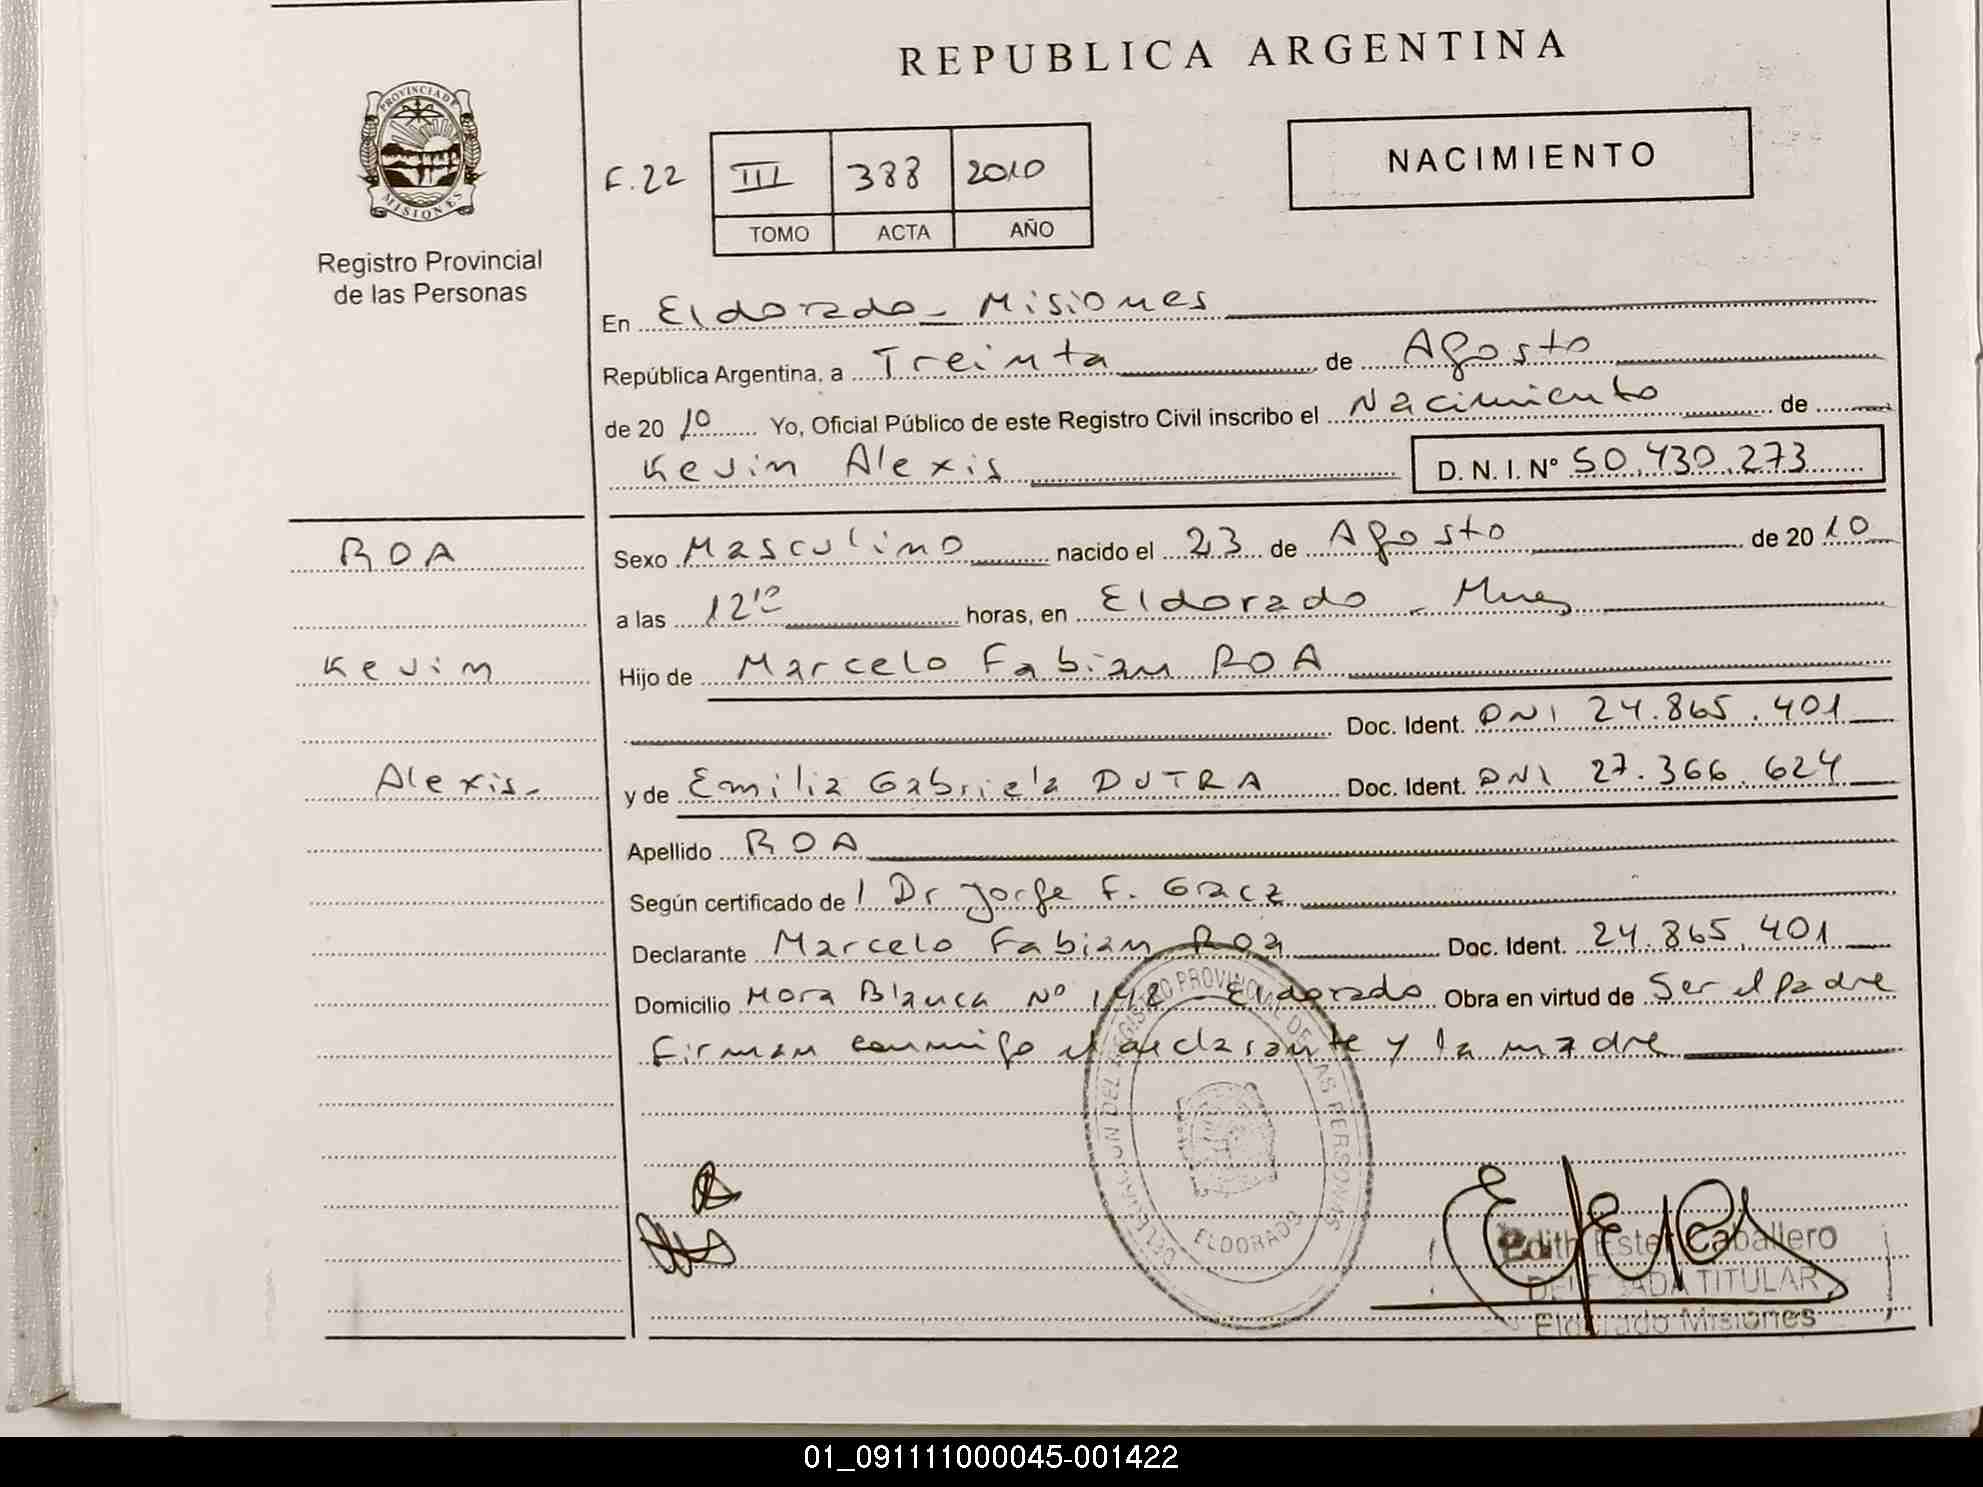 REPUBLICA ARGENTINA
PROVINCIA DE
MISIONES
Registro Provincial
de las Personas
F.22 III 388 2010
TOMO ACTA AÑO
NACIMIENTO
En Eldorado - Misiones
República Argentina, a Treinta de Agosto
de 2010 Yo, Oficial Público de este Registro Civil inscribo el Nacimiento de
Kevin Alexis D. N. I. Nº 50.430.273
ROA
Kevin
Alexis.-
Sexo Masculino nacido el 23 de Agosto de 2010
a las 12 10 horas, en Eldorado - Mnes
Hijo de Marcelo Fabian ROA
Doc. Ident. DNI 24.865.401
y de Emilia Gabriela DUTRA Doc. Ident. DNI 27.366.624
Apellido ROA
Según certificado de l Dr Jorge F. Gracz
Declarante Marcelo Fabian Roa Doc. Ident. 24.865.401
Domicilio Mora Blanca Nº 142 - Eldorado Obra en virtud de Ser el padre
Firman conmigo el declarante y la madre
DELEGACION DEL REGISTRO PROVINCIAL DE LAS PERSONAS
ELDORADO
Edith Ester Caballero
DELEGADA TITULAR
Eldorado Misiones
01_091111000045-001422